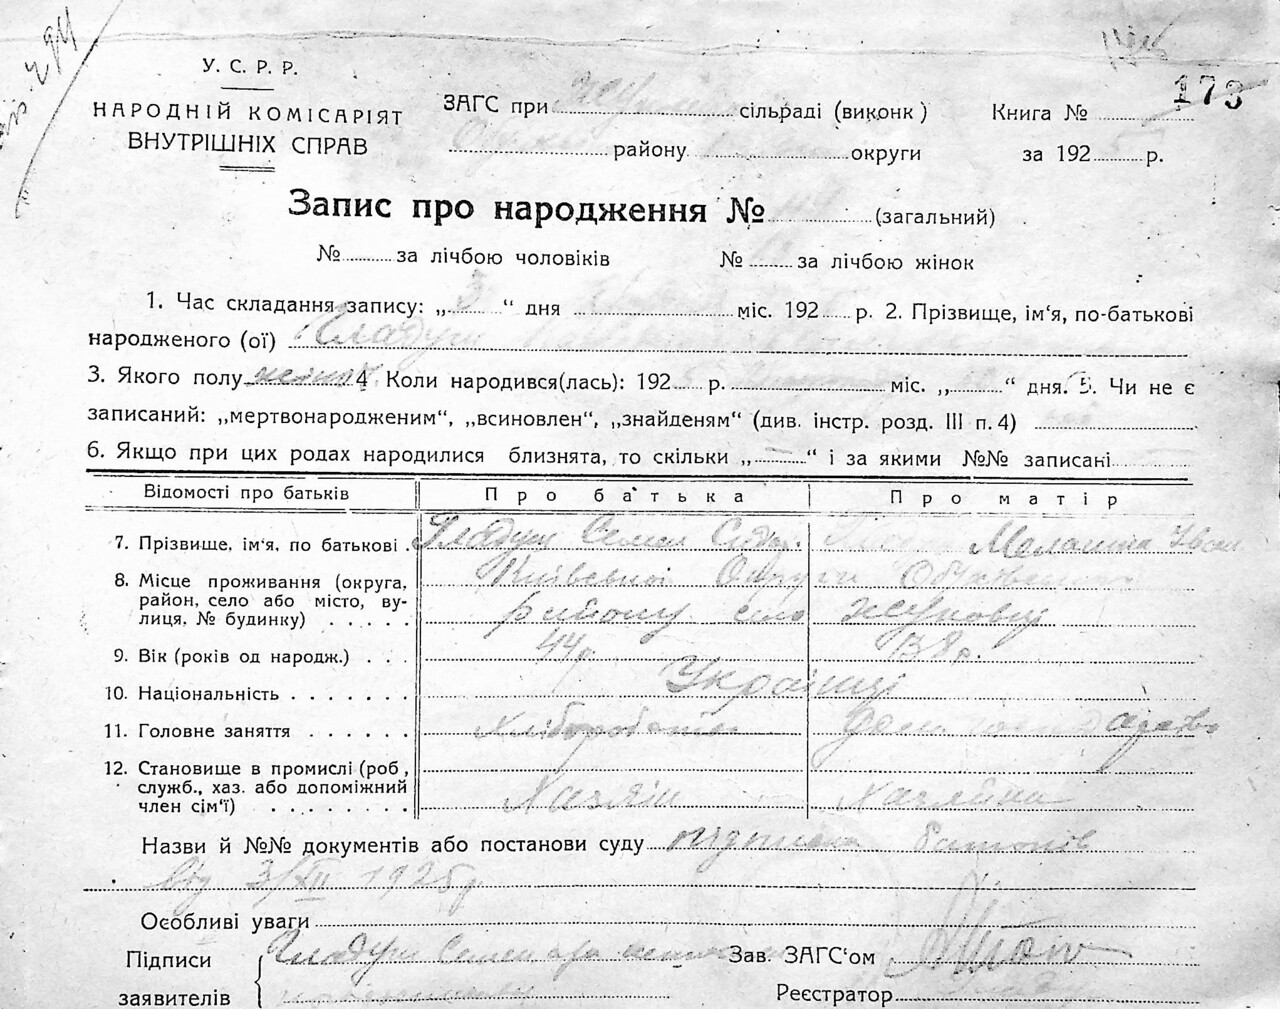 У. С. Р. Р.
НАРОДНІЙ КОМІСАРІЯТ
ВНУТРІШНІХ СПРАВ
ЗАГС при сільраді (виконк)
району округи
Книга № 173
за 1925 р.
Запис про народження № (загальний)
№ за лічбою чоловіків № за лічбою жінок
1. Час складання запису: „3“ дня міс. 192 р. 2. Прізвище, ім'я, по-батькові
народженого (ої) Гладуш
3. Якого полу жіноч. 4. Коли народився(лась): 192 р. міс. „ “ дня. 5. Чи не є
записаний: „мертвонародженим“, „всиновлен“, „знайденям“ (див. інстр. розд. III п. 4)
6. Якщо при цих родах народилися близнята, то скільки „—“ і за якими №№ записані
Відомості про батьків Про батька Про матір
7. Прізвище, ім'я, по батькові Гладуш Семен Мелашка Іван
8. Місце проживання (округа, район, село або місто, вулиця, № будинку) Київської Округи Обухівського
району село Жуковці
9. Вік (років од народж.) 44 р. 38 р.
10. Національність Українці
11. Головне заняття Хліборобство Дом господарство
12. Становище в промислі (роб., служб., хаз. або допоміжний член сім'ї) Хазяїн Хазяйка
Назви й №№ документів або постанови суду підписка батьків
від 3/XII 1925 р
Особливі уваги
Підписи
заявителів
Гладуш Семен
Зав. ЗАГС'ом
Реєстратор